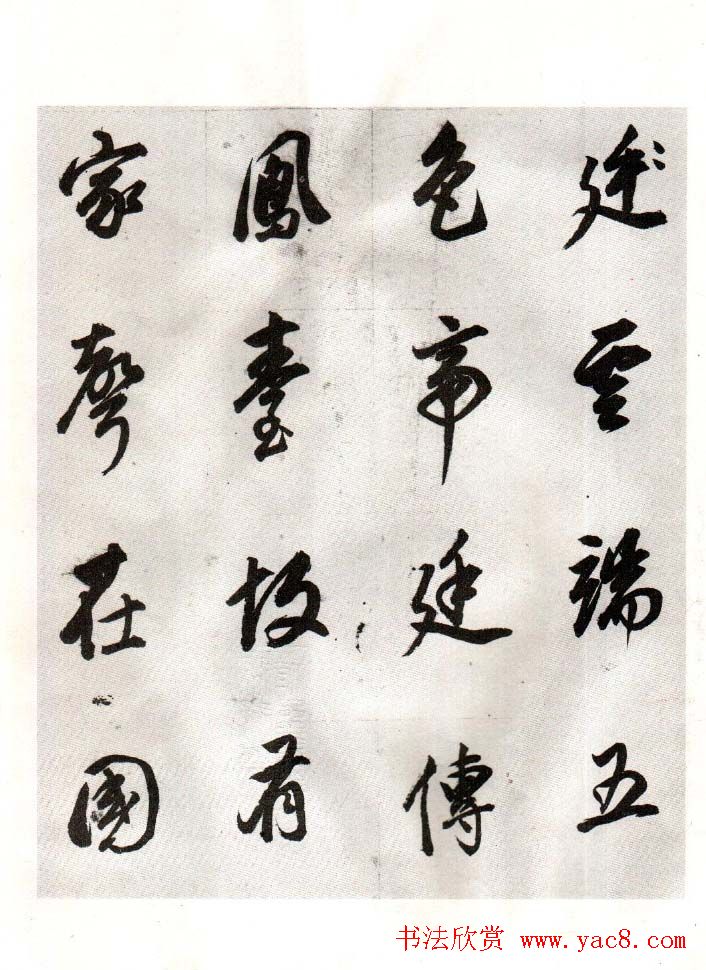 雲端五
色帝廷傳
鳳臺故有
家聲在國
书法欣赏 www.yac8.com